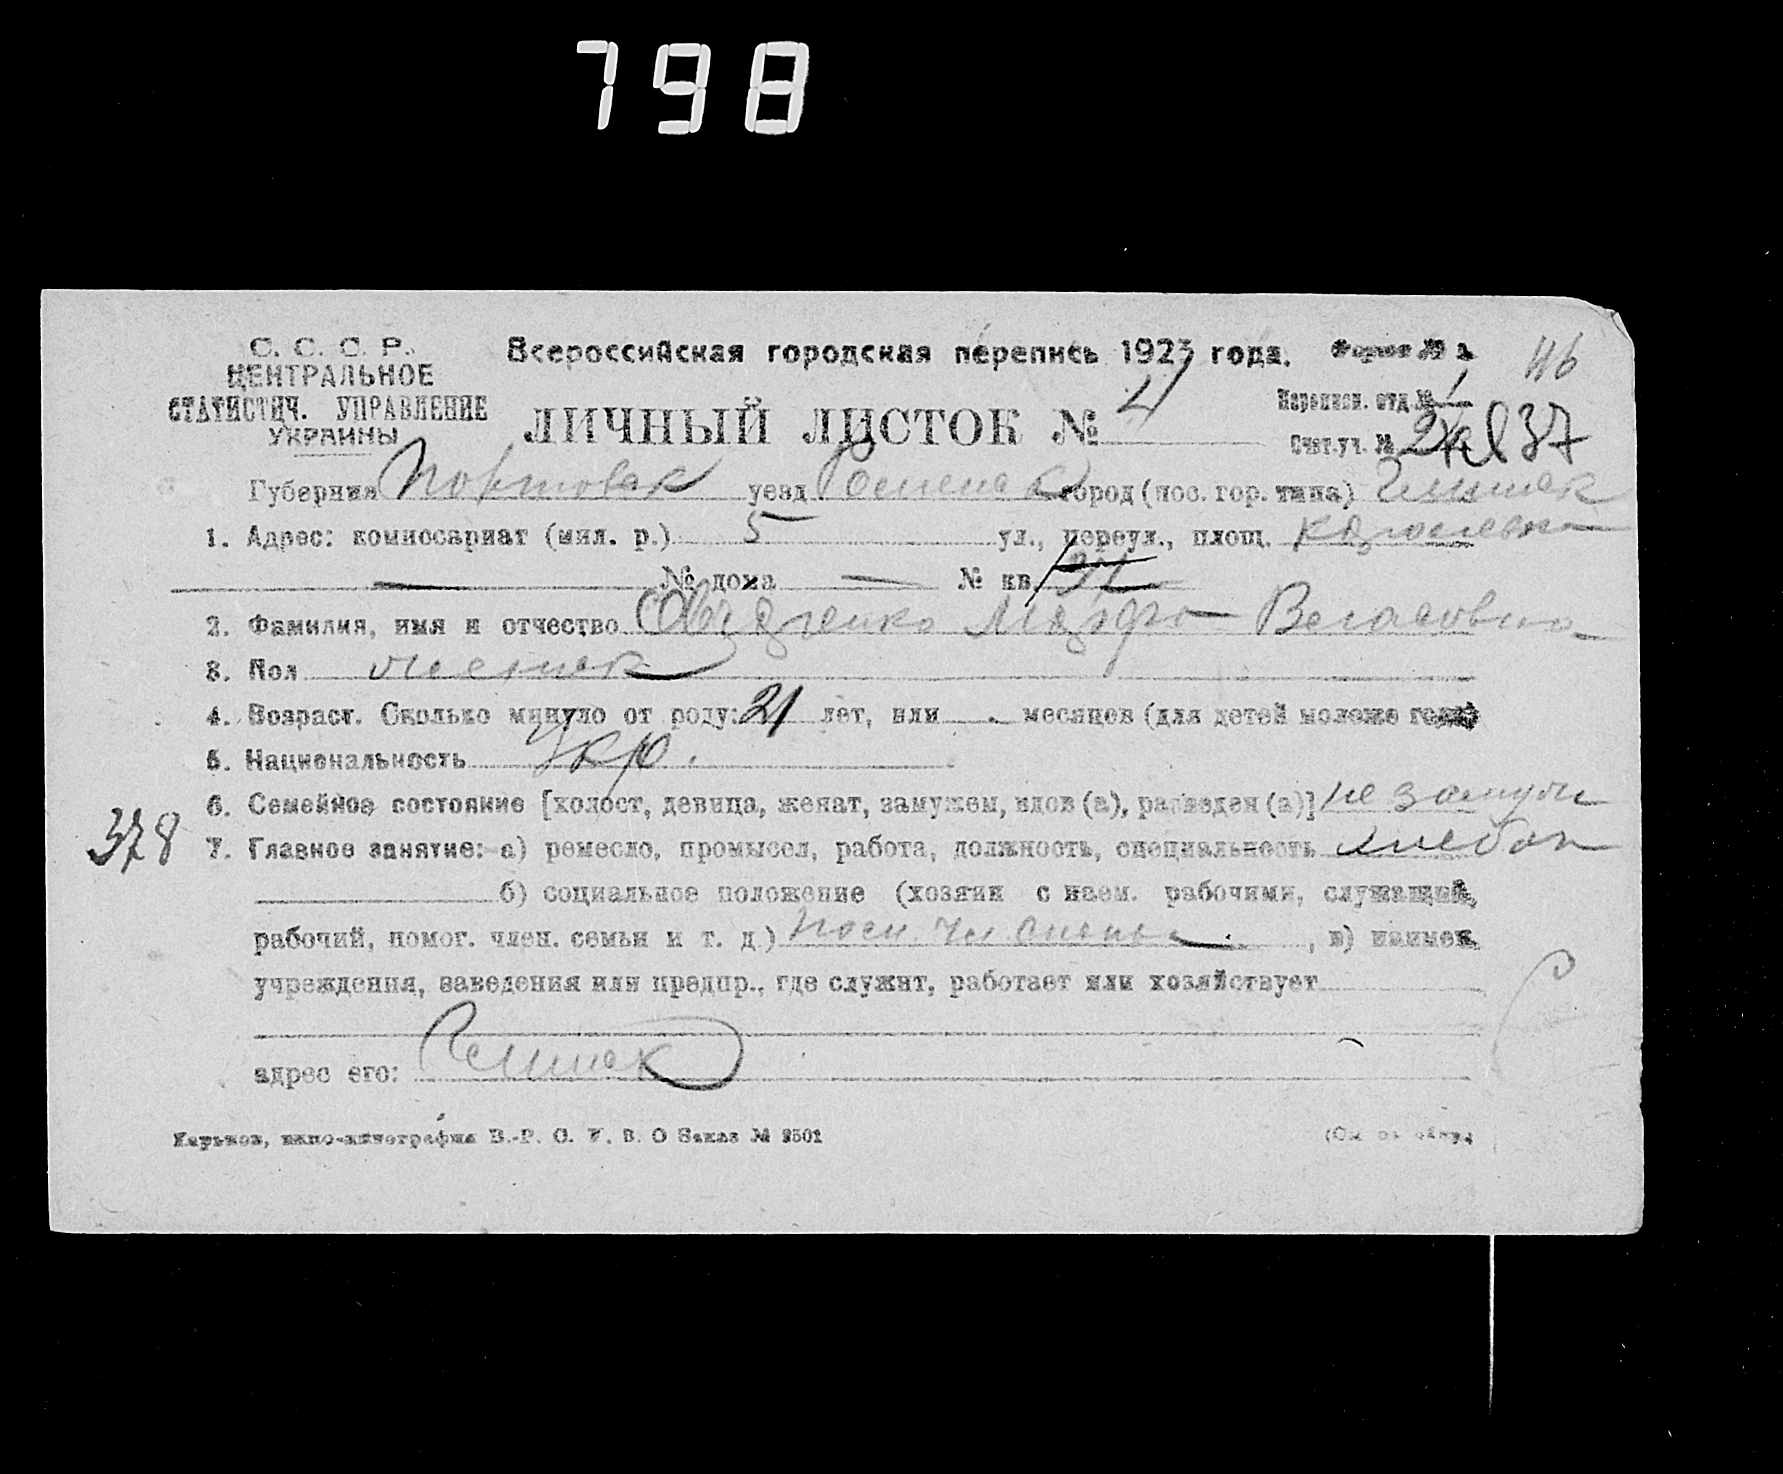 798
С. С. С. Р.
ЦЕНТРАЛЬНОЕ
СТАТИСТИЧ. УПРАВЛЕНИЕ
УКРАИНЫ
Всероссийская городская перепись 1923 года.
Форма № 1.
46
ЛИЧНЫЙ ЛИСТОК № 4
Переписн. отд. № 1
Счет. уч. № 37
Губерния Полтавск уезд город (пос. гор. типа)
1. Адрес: комиссариат (мил. р.) 5 ул., переул., площ.
— № дома — № кв.
2. Фамилия, имя и отчество Власовна
3. Пол женск
4. Возраст. Сколько минуло от роду: 21 лет, или - месяцев (для детей моложе года)
5. Национальность Укр.
6. Семейное состояние [холост, девица, женат, замужем, вдов (а), разведен (а)] не замужн
378
7. Главное занятие: а) ремесло, промысел, работа, должность, специальность хлебоп
б) социальное положение (хозяин с наем. рабочими, служащий,
рабочий, помог. член. семьи и т. д.) пом. чл семьи, в) наимен.
учреждения, заведения или предпр., где служит, работает или хозяйствует
адрес его:
Харьков, В.-Р. С. У. В. О Заказ № 9501
(См. на обор.)